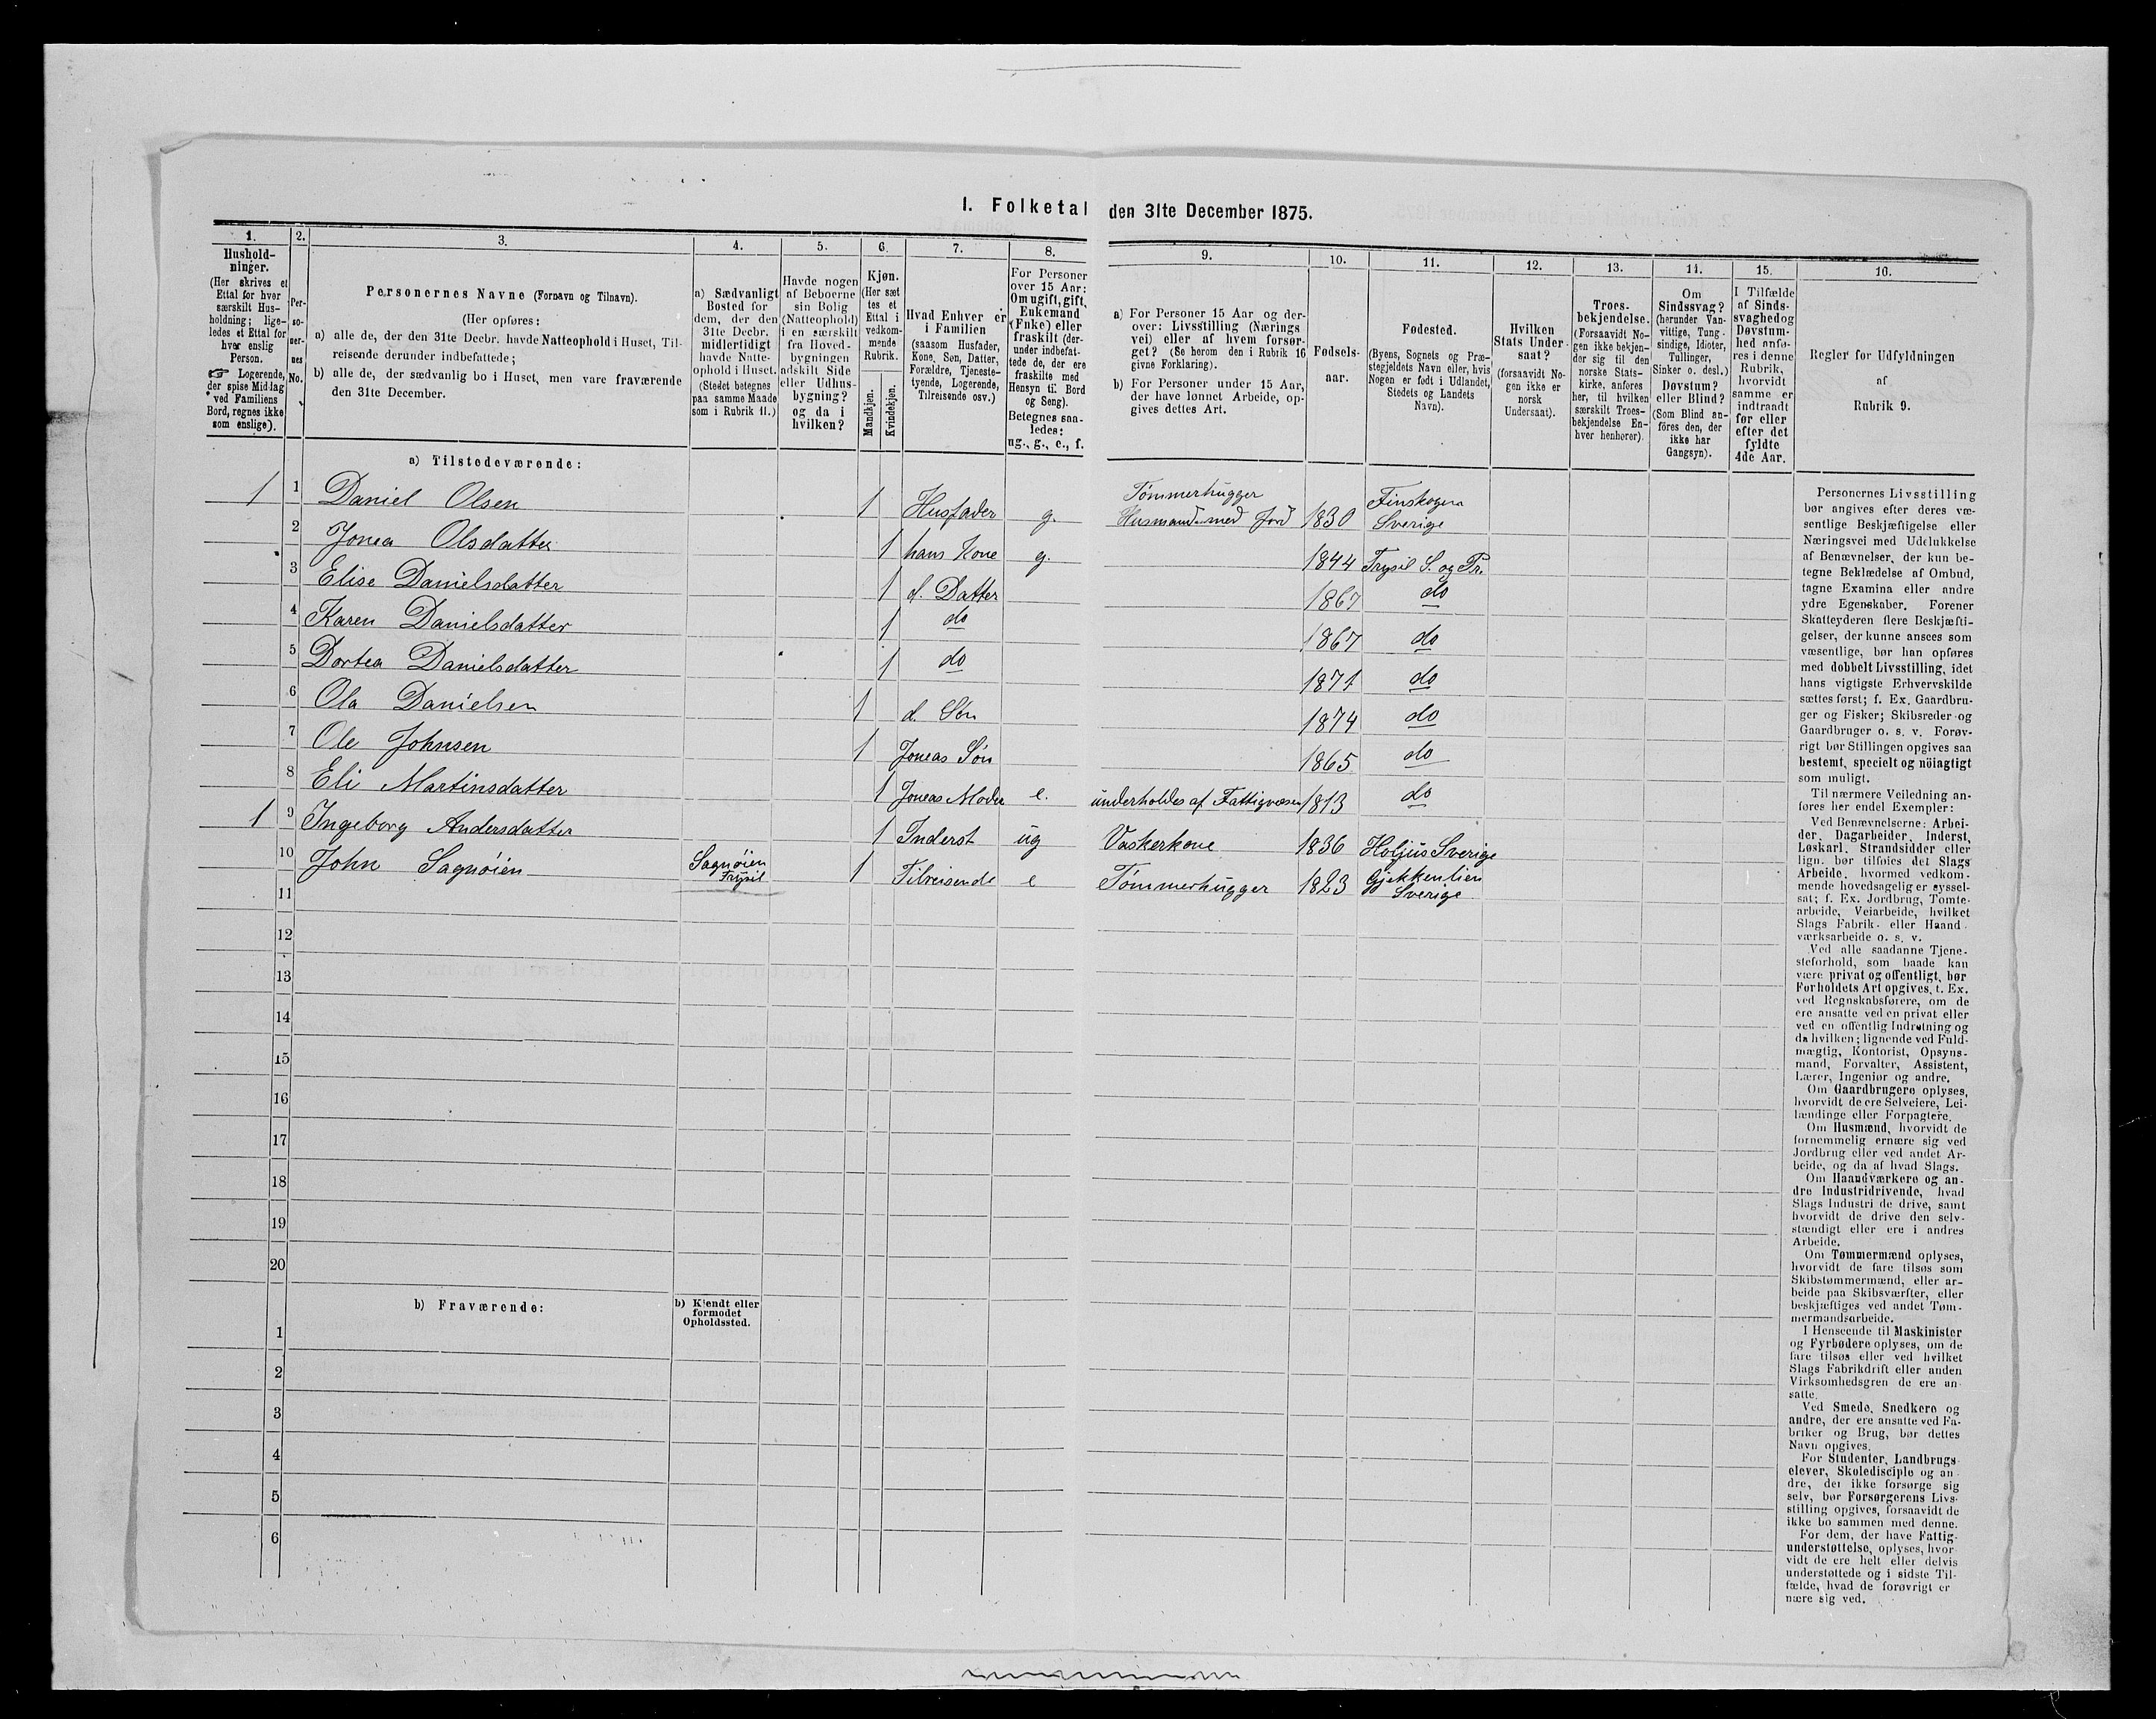 I. Folketal den 31te December 1875.
1.
Hushold-
ninger.
(Her skrives et
Ettal for hver
særskilt Hus-
holdning; lige-
ledes et Ettal for
hver enslig
Person.
☞ Logerende,
der spise Middag
ved Familiens
Bord, regnes ikke
som enslige).
2.
Per-
so-
ner-
nes
No.
3.
Personernes Navne (Fornavn og Tilnavn).
(Her opføres:
a) alle de, der den 31te Decbr. havde Natteophold i Huset, Til-
reisende derunder indbefattede;
b) alle de, der sædvanlig bo i Huset, men vare fraværende
den 31te December.
4.
a) Sædvanligt
Bosted for
dem, der den
31te Decbr.
midlertidigt
havde Natte-
ophold i Huset.
(Stedet betegnes
paa samme Maade
som i Rubrik 11.)
5.
Havde nogen
af Beboerne
sin Bolig
(Natteophold)
i en særskilt
fra Hoved-
bygningen
adskilt Side
eller Udhus-
bygning?
og da i
hvilken?
6.
Kjøn.
(Her sæt
tes et
Ettal i
vedkom-
mende
Rubrik.
Mandkjøn.
Kvindekjøn.
7.
Hvad Enhver er
i Familien
(saasom Husfader,
Kone, Søn, Datter,
Forældre, Tjeneste-
tyende, Logerende,
Tilreisende osv.)
8.
For Personer
over 15 Aar:
Om ugift, gift,
Enkemand
(Enke) eller
fraskilt (der-
under indbefat-
tede de, der ere
fraskilte med
Hensyn til Bord
og Seng).
Betegnes saa-
ledes:
ug., g., e., f.
9.
a) For Personer 15 Aar og der-
over: Livsstilling (Nærings
vei) eller af hvem forsør-
get? (Se herom den i Rubrik 16
givne Forklaring).
b) For Personer under 15 Aar,
der have lønnet Arbeide, op-
gives dettes Art.
10.
Fødsels-
aar.
11.
Fødested.
(Byens, Sognets og Præ-
stegjeldets Navn eller, hvis
Nogen er født i Udlandet,
Stedets og Landets
Navn).
12.
Hvilken
Stats Under-
saat?
(forsaavidt No-
gen ikke er
norsk
Undersaat).
13.
Troes-
bekjendelse.
(Forsaavidt No-
gen ikke bekjen-
der sig til den
norske Stats-
kirke, anføres
her, til hvilken
særskilt Troes-
bekjendelse En-
hver henhører).
14.
Om
Sindssvag?
(herunder Van-
vittige, Tung-
sindige, Idioter,
Tullinger,
Sinker o. desl.)
Døvstum?
eller Blind?
(Som Blind an-
föres den, der
ikke har
Gangsyn).
15.
I Tilfælde
af Sinds-
svaghed og
Døvstum-
hed anfø-
res i denne
Rubrik,
hvorvidt
samme er
indtraadt
før eller
efter det
fyldte
4de Aar.
16.
Regler for Udfyldningen
af
Rubrik 9.
a) Tilstedeværende:
1 1 Daniel Olsen 1 Husfader g. Tømmerhugger Husmand med Jord 1830 Finskogen Sverige
2 Jonea Olsdatter 1 hans Kone g. 1844 Trysil S. og Pr.
3 Elise Danielsdatter 1 d. Datter 1867 do
4 Karen Danielsdatter 1 do 1867 do
5 Dortea Danielsdatter 1 do 1871 do
6 Ola Danielsen 1 d. Søn 1874 do
7 Ole Johnsen 1 Joneas Søn 1865 do
8 Eli Martinsdatter 1 Joneas Moder e. underholdes af Fattigvæsen 1813 do
1 9 Ingeborg Andersdatter 1 Inderst ug Vaskerkone 1836 Holjus Sverige
10 John Sagnøien Sagnøien Trysil 1 Tilreisende e Tømmerhugger 1823 Gjekkenlien Sverige
11
12
13
14
15
16
17
18
19
20
b) Fraværende:
b) Kjendt eller
formodet
Opholdssted.
1
2
3
4
5
6
Personernes Livsstilling
bør angives efter deres væ-
sentlige Beskjæftigelse eller
Næringsvei med Udelukkelse
af Benævnelser, der kun be-
tegne Beklædelse af Ombud,
tagne Examina eller andre
ydre Egenskaber. Forener
Skatteyderen flere Beskjæfti-
gelser, der kunne ansees som
væsentlige, bør han opføres
med dobbelt Livsstilling, idet
hans vigtigste Erhvervskilde
sættes først; f. Ex. Gaardbru-
ger og Fisker; Skibsreder og
Gaardbruger o. s. v. Forøv-
rigt bør Stillingen opgives saa
bestemt, specielt og nöiagtigt
som muligt.
Til nærmere Veiledning an-
føres her endel Exempler:
Ved Benævnelserne: Arbei-
der, Dagarbeider, Inderst,
Løskarl, Strandsidder eller
lign. bør tilføies det Slags
Arbeide, hvormed vedkom-
mende hovedsagelig er syssel-
sat; f. Ex. Jordbrug, Tomte-
arbeide, Veiarbeide, hvilket
Slags Fabrik- eller Haand-
værksarbeide o. s. v.
Ved alle saadanne Tjene-
steforhold, som baade kan
være privat og offentligt, bør
Forholdets Art opgives, t. Ex.
ved Regnskabsførere, om de
ere ansatte ved en privat eller
ved en offentlig Indretning og
da hvilken; lignende ved Fuld-
mægtig, Kontorist, Opsyns-
mand, Forvalter, Assistent,
Lærer, Ingeniør og andre.
Om Gaardbrugere oplyses,
hvorvidt de ere Selveiere, Lei-
lændinge eller Forpagtere.
Om Husmænd, hvorvidt de
fornemmelig ernære sig ved
Jordbrug eller ved andet Ar-
beide, og da af hvad Slags.
Om Haandværkere og an-
dre Industridrivende, hvad
Slags Industri de drive, samt
hvorvidt de drive den selv-
stændigt eller ere i andres
Arbeide.
Om Tømmermænd oplyses,
hvorvidt de fare tilsøs som
Skibstømmermænd, eller ar-
beide paa Skibsværfter, eller
beskjæftiges ved andet Tøm-
mermandsarbeide.
I Henseende til Maskinister
og Fyrbødere oplyses, om de
fare tilsøs eller ved hvilket
Slags Fabrikdrift eller anden
Virksomhedsgren de ere an-
satte.
Ved Smede, Snedkere og
andre, der ere ansatte ved Fa-
briker og Brug, bør dettes
Navn opgives.
For Studenter, Landbrugs-
elever, Skoledisciple og an-
dre, der ikke forsørge sig
selv, bør Forsørgerens Livs-
stilling opgives, forsaavidt de
ikke bo sammen med denne.
For dem, der have Fattig-
understøttelse, oplyses, hvor-
vidt de ere helt eller delvis
understøttede og i sidste Til-
fælde, hvad de forøvrigt er
nære sig ved.